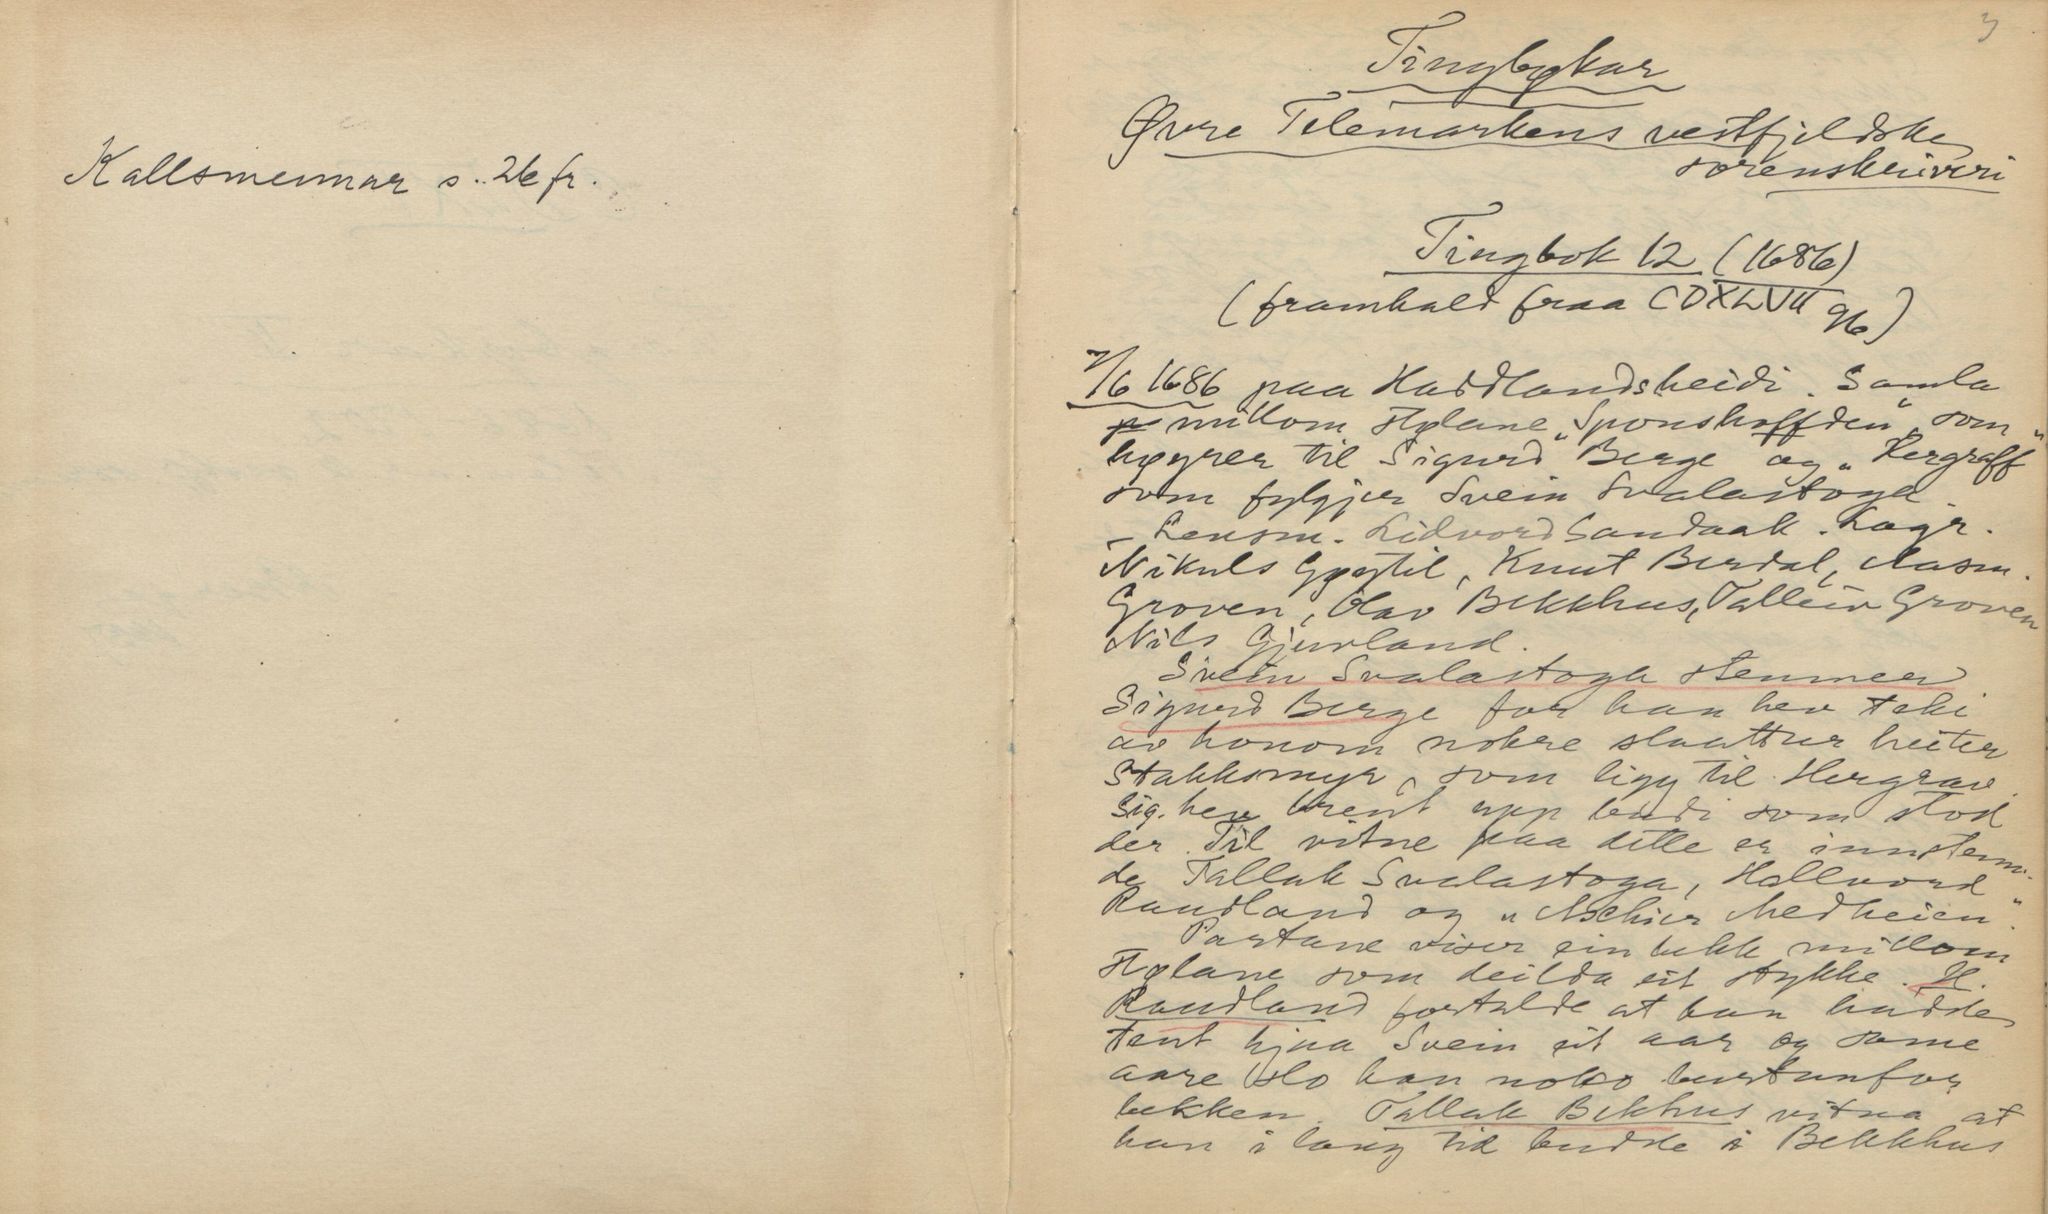 Kallsmennar s. 26 fr.
3
Tingbøkar
Øvre Telemarkens vestfjeldske
sorenskriveri
Tingbok 12 (1686)
(framhald fraa CDXLVII 96)
7/6 1686 paa Haddlandsheidi. Samla
millom stølane "Sponshoffden" som
høyrer til Sigurd Berge og "Hergraff"
som fylgjer Svein Svalastoga.
- Lensm. Lidvord Sandaak. Lagr.
Nikuls Gøytil, Knut Berdal, Aasm.
Groven, Olav Bekkhus, Talleiv Groven
Nils Gjuvland.
Svein Svalastoga stemner
Sigurd Berge for han hev teki
av honom nokre slaattur heiter
Stakksmyr, som ligg til Hergrav.
Sig. hev brent upp budi som stod
der. Til vitne paa dette er innstem-
de Tallak Svalastoga, Hallvord
Raudland og "Aschier Medheien"
Partane viser ein bekk millom
stølane som deilda eit stykke. H.
Raudland fortalde at han hadde
tent hjaa Svein eit aar og same
aare slo han noko burtanfor
bekken. Tallak Bekhus vitna at
han i lang tid budde i Bekkhus